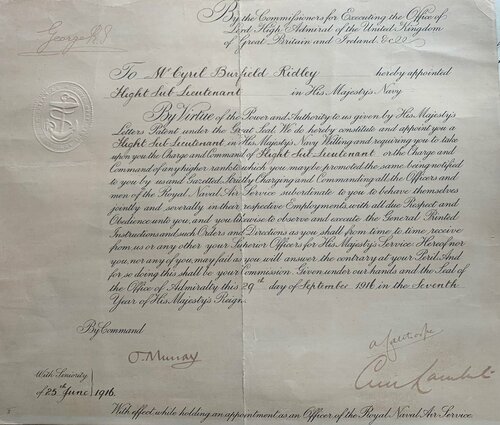 George R I
By the Commissioners for Executing the Office of
Lord High Admiral of the United Kingdom
of Great Britain and Ireland &c &c
To Mr. Cyril Burfield Ridley hereby appointed
Flight Sub Lieutenant in His Majesty's Navy
By Virtue of the Power and Authority to us given by His Majesty's
Letters Patent under the Great Seal We do hereby constitute and appoint you a
Flight Sub Lieutenant in His Majesty's Navy Willing and requiring you to take
upon you the Charge and Command of Flight Sub Lieutenant or the Charge and
Command of any higher rank to which you may be promoted the same being notified
to you by us and Gazetted, Strictly Charging and Commanding all the Officers and
men of the Royal Naval Air Service subordinate to you to behave themselves
jointly and severally in their respective Employments, with all due Respect and
Obedience unto you, and you likewise to observe and execute the General Printed
Instructions and such Orders and Directions as you shall from time to time receive
from us or any other your Superior Officers for His Majesty's Service Hereof nor
you, nor any of you, may fail as you will answer the contrary at your Peril. And
for so doing this shall be your Commission. Given under our hands and the Seal of
the Office of Admiralty this 29th day of September 1916 in the Seventh
Year of His Majesty's Reign.
By Command
O. Murray
With Seniority
of 25th June 1916.
With effect while holding an appointment as an Officer of the Royal Naval Air Service.